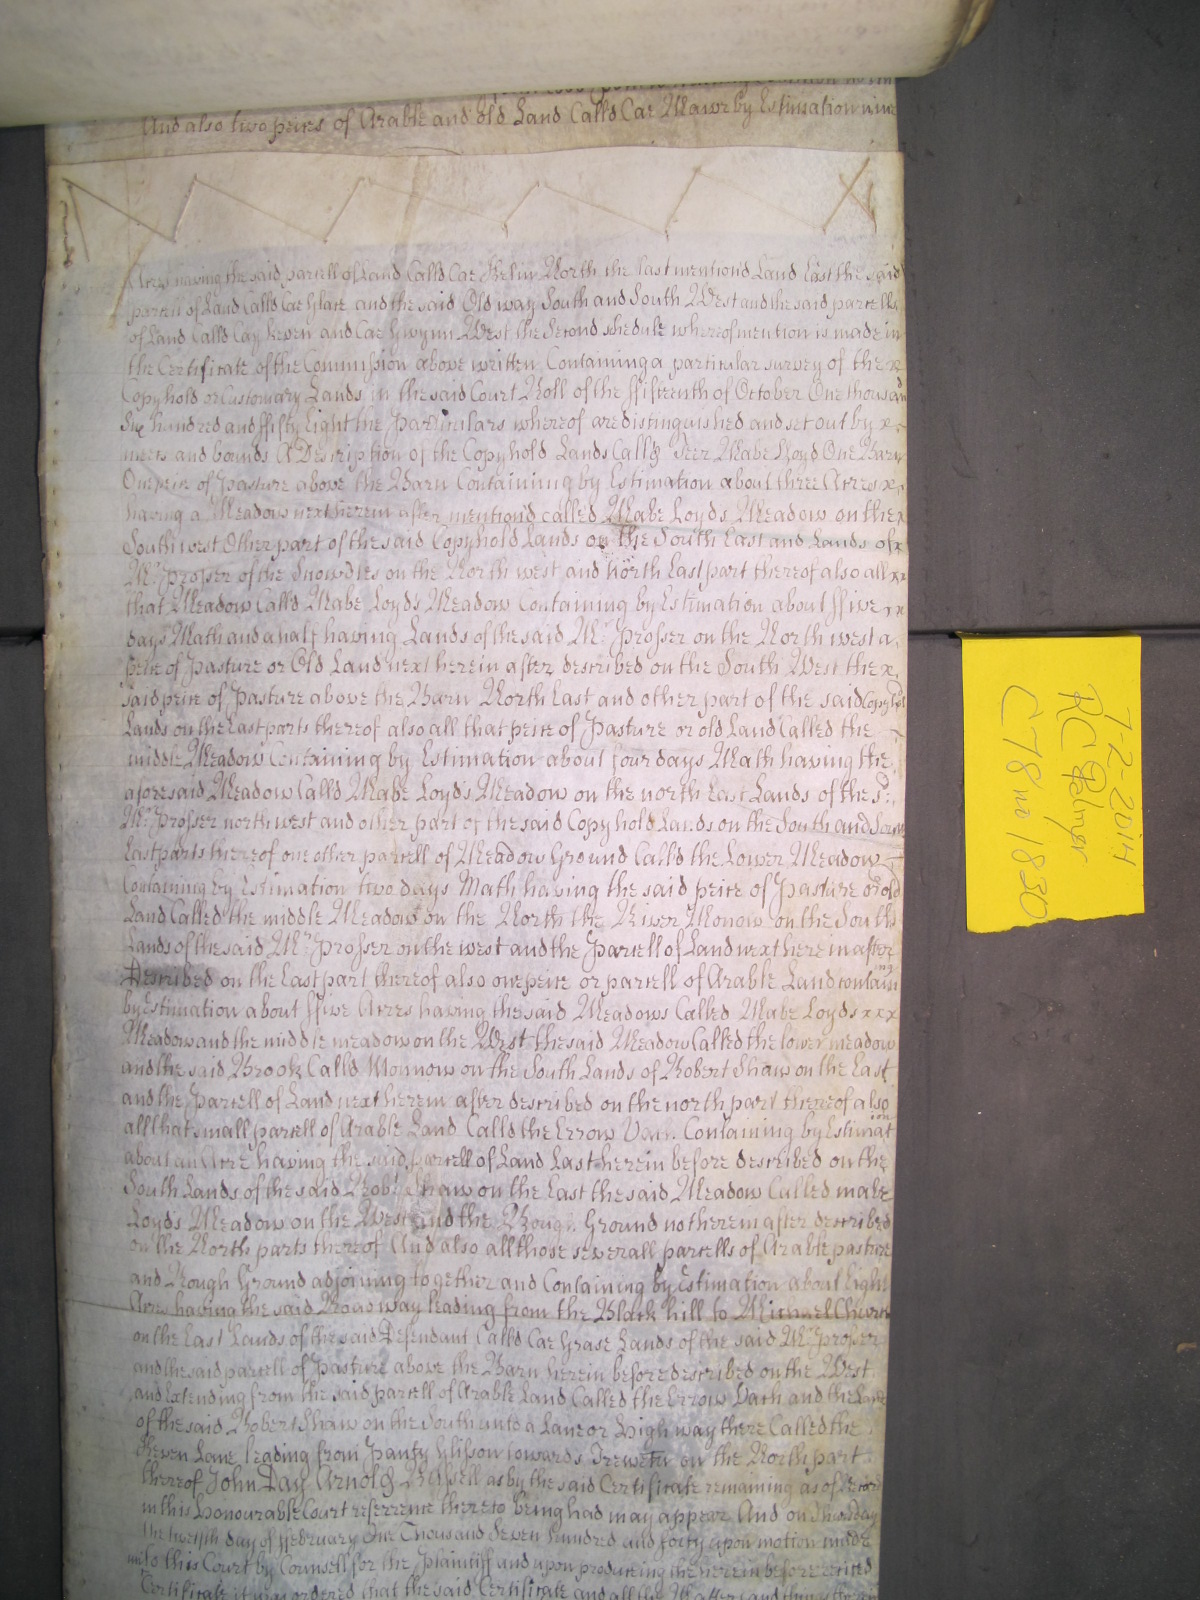 And also two peices of Arable and old Land Calld Cae Mawr by Estimation nine
Acres having the said parcell of Land Calld Cae North the last mentiond Land East the said
parcell of Land Calld Cae and the said Old way South and South West and the said parcells
of Land Calld Cay and Cae Gwynn West the Second schedule whereof mention is made in
the Certificate of the Commission above written Containing a particular survey of the x
Copyhold or Customary Lands in the said Court Roll of the ffifteenth of October One thousand
Six hundred and ffifty Eight the Particulars whereof are distinguished and set out by x
meets and bounds A Description of the Copyhold Lands Calld Mabe Lloyd One Barn
One peice of Pasture above the Barn Containing by Estimation about three Acres x
having a Meadow next herein after mentiond called Mabe Loyds Meadow on the x
South west Other part of the said Copyhold Lands on the South East and Lands of x
Mr Prosser of the on the North west and North East part thereof also all xx
that Meadow Calld Mabe Loyds Meadow Containing by Estimation about ffive xx
days Math and a half having Lands of the said Mr Prosser on the North west a
peice of Pasture or Old Land next herein after described on the South West the x
said peice of Pasture above the Barn North East and other part of the said Copyhold
Lands on the East parts thereof also all that peice of Pasture or old Land Called the
middle Meadow Containing by Estimation about four days Math having the
aforesaid Meadow Calld Mabe Loyds Meadow on the north East Lands of the sd
Mr Prosser north west and other part of the said Copyhold Lands on the South and South
East parts thereof one other parcell of Meadow Ground Calld the Lower Meadow
Containing by Estimation two days Math having the said peice of Pasture or old
Land Called the middle Meadow on the North the River Monow on the South
Lands of the said Mr Prosser on the west and the Parcell of Land next herein after
Described on the East part thereof also one peice or parcell of Arable Land containing
by Estimation about ffive Acres having the said Meadows Called Mabe Loyds xxx
Meadow and the middle meadow on the West the said Meadow Called the lower meadow
and the said Brook Calld Monnow on the South Lands of Robert Shaw on the East
and the Parcell of Land next herein after described on the north part thereof also
all that small parcell of Arable Land Calld the Errow Containing by Estimation
about an Acre having the said parcell of Land Last herein before described on the
South Lands of the said Robt Shaw on the East the said Meadow Called mabe
Loyds Meadow on the West and the Rough Ground next herein after described
on the North parts thereof And also all those severall parcells of Arable pasture
and Rough Ground adjoining together and Containing by Estimation about Eight
Acres having the said Road way leading from the Black hill to Michael Church
on the East Lands of the said Defendant Calld Cae Grase Lands of the said Mr Prosser
and the said parcell of Pasture above the Barn herein before described on the West
and Extending from the said parcell of Arable Land Called the Errow Vach and the Land
of the said Robert Shaw on the South unto a Lane or High way there Called the
Lane leading from Panty towards on the North part
thereof John Day Arnold Russell as by the said Certificate remaining as of Record
in this Honourable Court referrence thereto being had may appear And on
the twelfth day of ffebruary One Thousand Seven hundred and forty upon motion made
unto this Court by Counsell for the Plaintiff and upon producing the herein before recited
Certificate it was ordered that the said Certificate and all the Matters and things
7-2-2014
RC Palmer
C78 no 1830